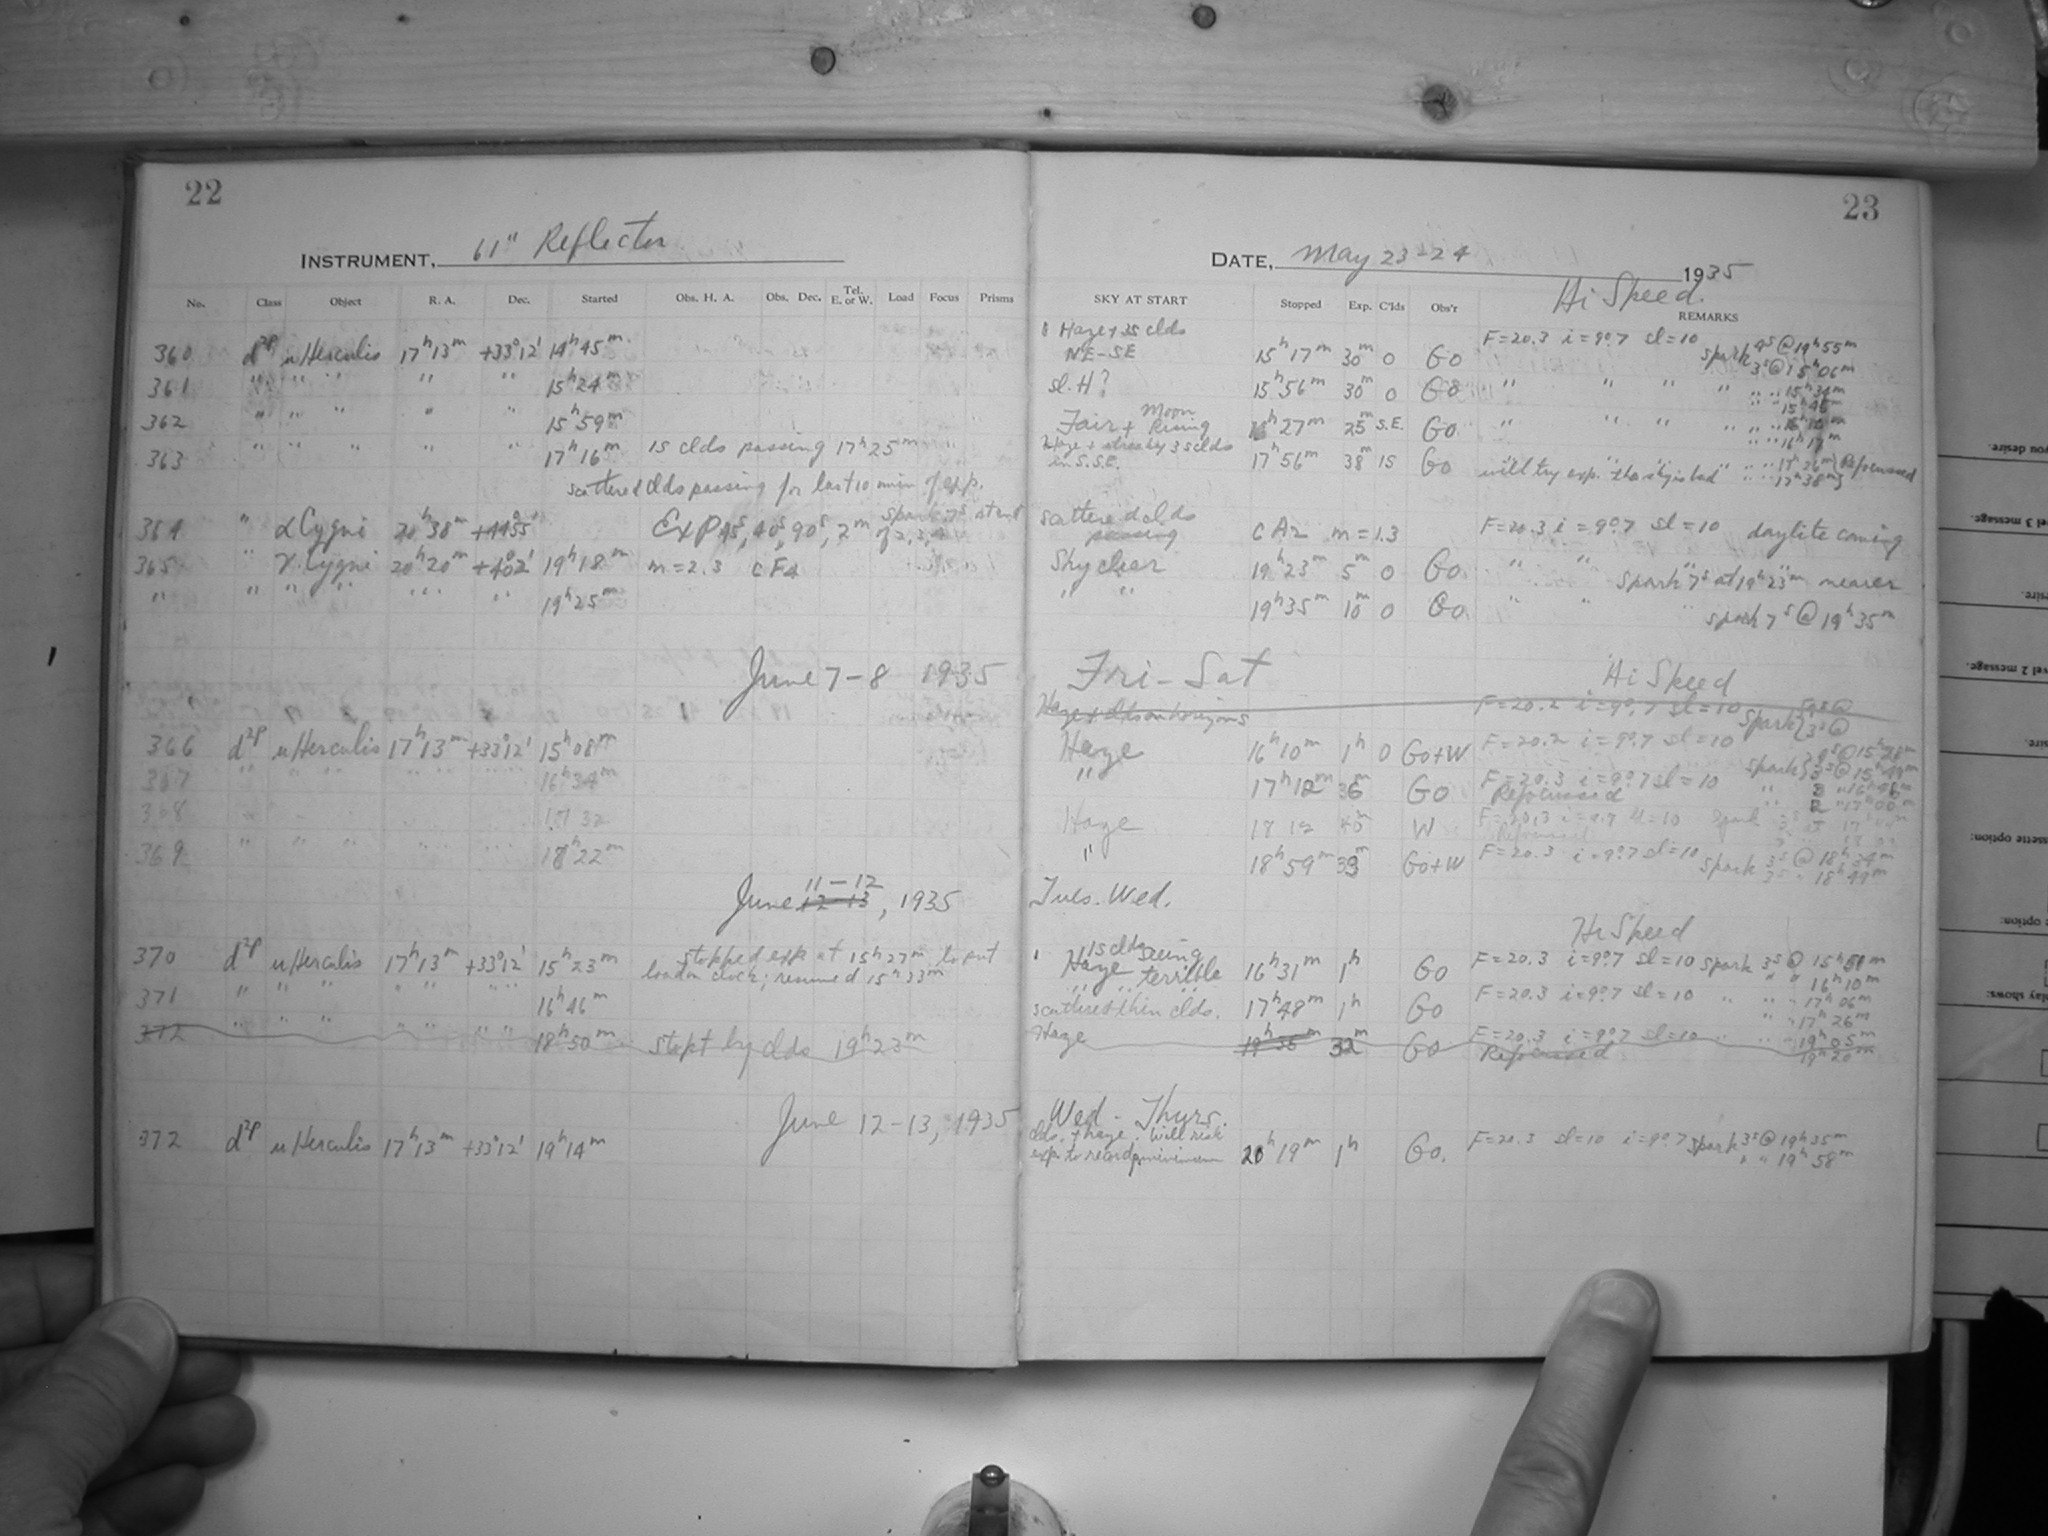 22
INSTRUMENT, 61" Reflector
No. Class Object R. A. Dec. Started Obs. H. A. Obs. Dec. Tel. E. or W. Load Focus Prisms
360 d2p u Herculis 17h13m +33°12' 14h45m
361 " " " " " 15h24m
362 " " " " " 15h59m
363 " " " " " 17h16m 1s clds passing 17h25m
scattered clds passing for last 10 min of exp.
364 " α Cygni 20h38m +44°55' Exp 45s, 40s, 90s, 2m spark 7s at end of 2, 3, 4
365 " γ Cygni 20h20m +40°2' 19h18m m=2.3 cF4
" " " " " " " 19h25m
June 7-8 1935
366 d2p u Herculis 17h13m +33°12' 15h08m
367 " " " " " 16h34m
368 17 32
369 " " " " " 18h22m
June 12-13 11-12, 1935
370 d2p u Herculis 17h13m +33°12' 15h23m stopped exp at 15h27m to put
london clock; resumed 15h33m
371 " " " " " 16h46m
372 " " " " " 18h50m stopt by clds 19h23m
June 12-13, 1935
372 d2p u Herculis 17h13m +33°12' 19h14m
23
DATE, May 23-24 1935
Hi Speed
SKY AT START Stopped Exp. C'lds Obs'r REMARKS
Haze + 3s clds
NE-SE 15h17m 30m 0 Go F=20.3 i=9°.7 sl=10 spark 4s@14h55m
3s@15h06m
sl. H? 15h56m 30m 0 Go " " " " " " 15h34m
" " 15h46m
Fair + Moon Rising 16h27m 25m S.E. Go " " " " " " 16h10m
" " 16h17m
Haze + streaky 3s clds
in S.S.E. 17h56m 38m 1S Go will try exp. tho sky is bad " " 17h26m Refocussed
" " 17h38m
scattered clds
passing cA2 m=1.3 F=20.3 i=9°.7 sl=10 daylite coming
Sky clear 19h23m 5m 0 Go " " spark 7s at 19h23m nearer
" " 19h35m 10m 0 Go " " spark 7s @ 19h35m
Fri-Sat Hi Speed
Haze + clds on horizons F=20.2 i=9°.7 sl=10 spark 3s@
Haze 16h10m 1h 0 Go+W F=20.2 i=9°.7 sl=10 spark 3s@15h28m
3s@15h49m
" 17h12m 36m Go F=20.3 i=9°.7 sl=10 " 3 " 16h48m
Refocussed " 2 " 17h00m
Haze 18 12 40m W F=20.3 i=9.7 sl=10 Spark
" 18h59m 33m Go+W F=20.3 i=9°.7 sl=10 spark 3s @ 18h34m
3s " 18h49m
Tues. Wed.
Hi Speed
1s clds Seeing
Haze terrible 16h31m 1h Go F=20.3 i=9°.7 sl=10 spark 3s@ 15h51m
" " 16h10m
scattered thin clds. 17h48m 1h Go F=20.3 i=9°.7 sl=10 " " " 17h06m
" " 17h26m
Haze 19h35m 32m Go F=20.3 i=9°.7 sl=10 " " " 19h05m
Refocussed 19h20m
Wed-Thurs.
clds. + haze. Will risk
exp. to record minimum 20h19m 1h Go. F=20.3 sl=10 i=9°.7 spark 3s@ 19h35m
" " 19h58m